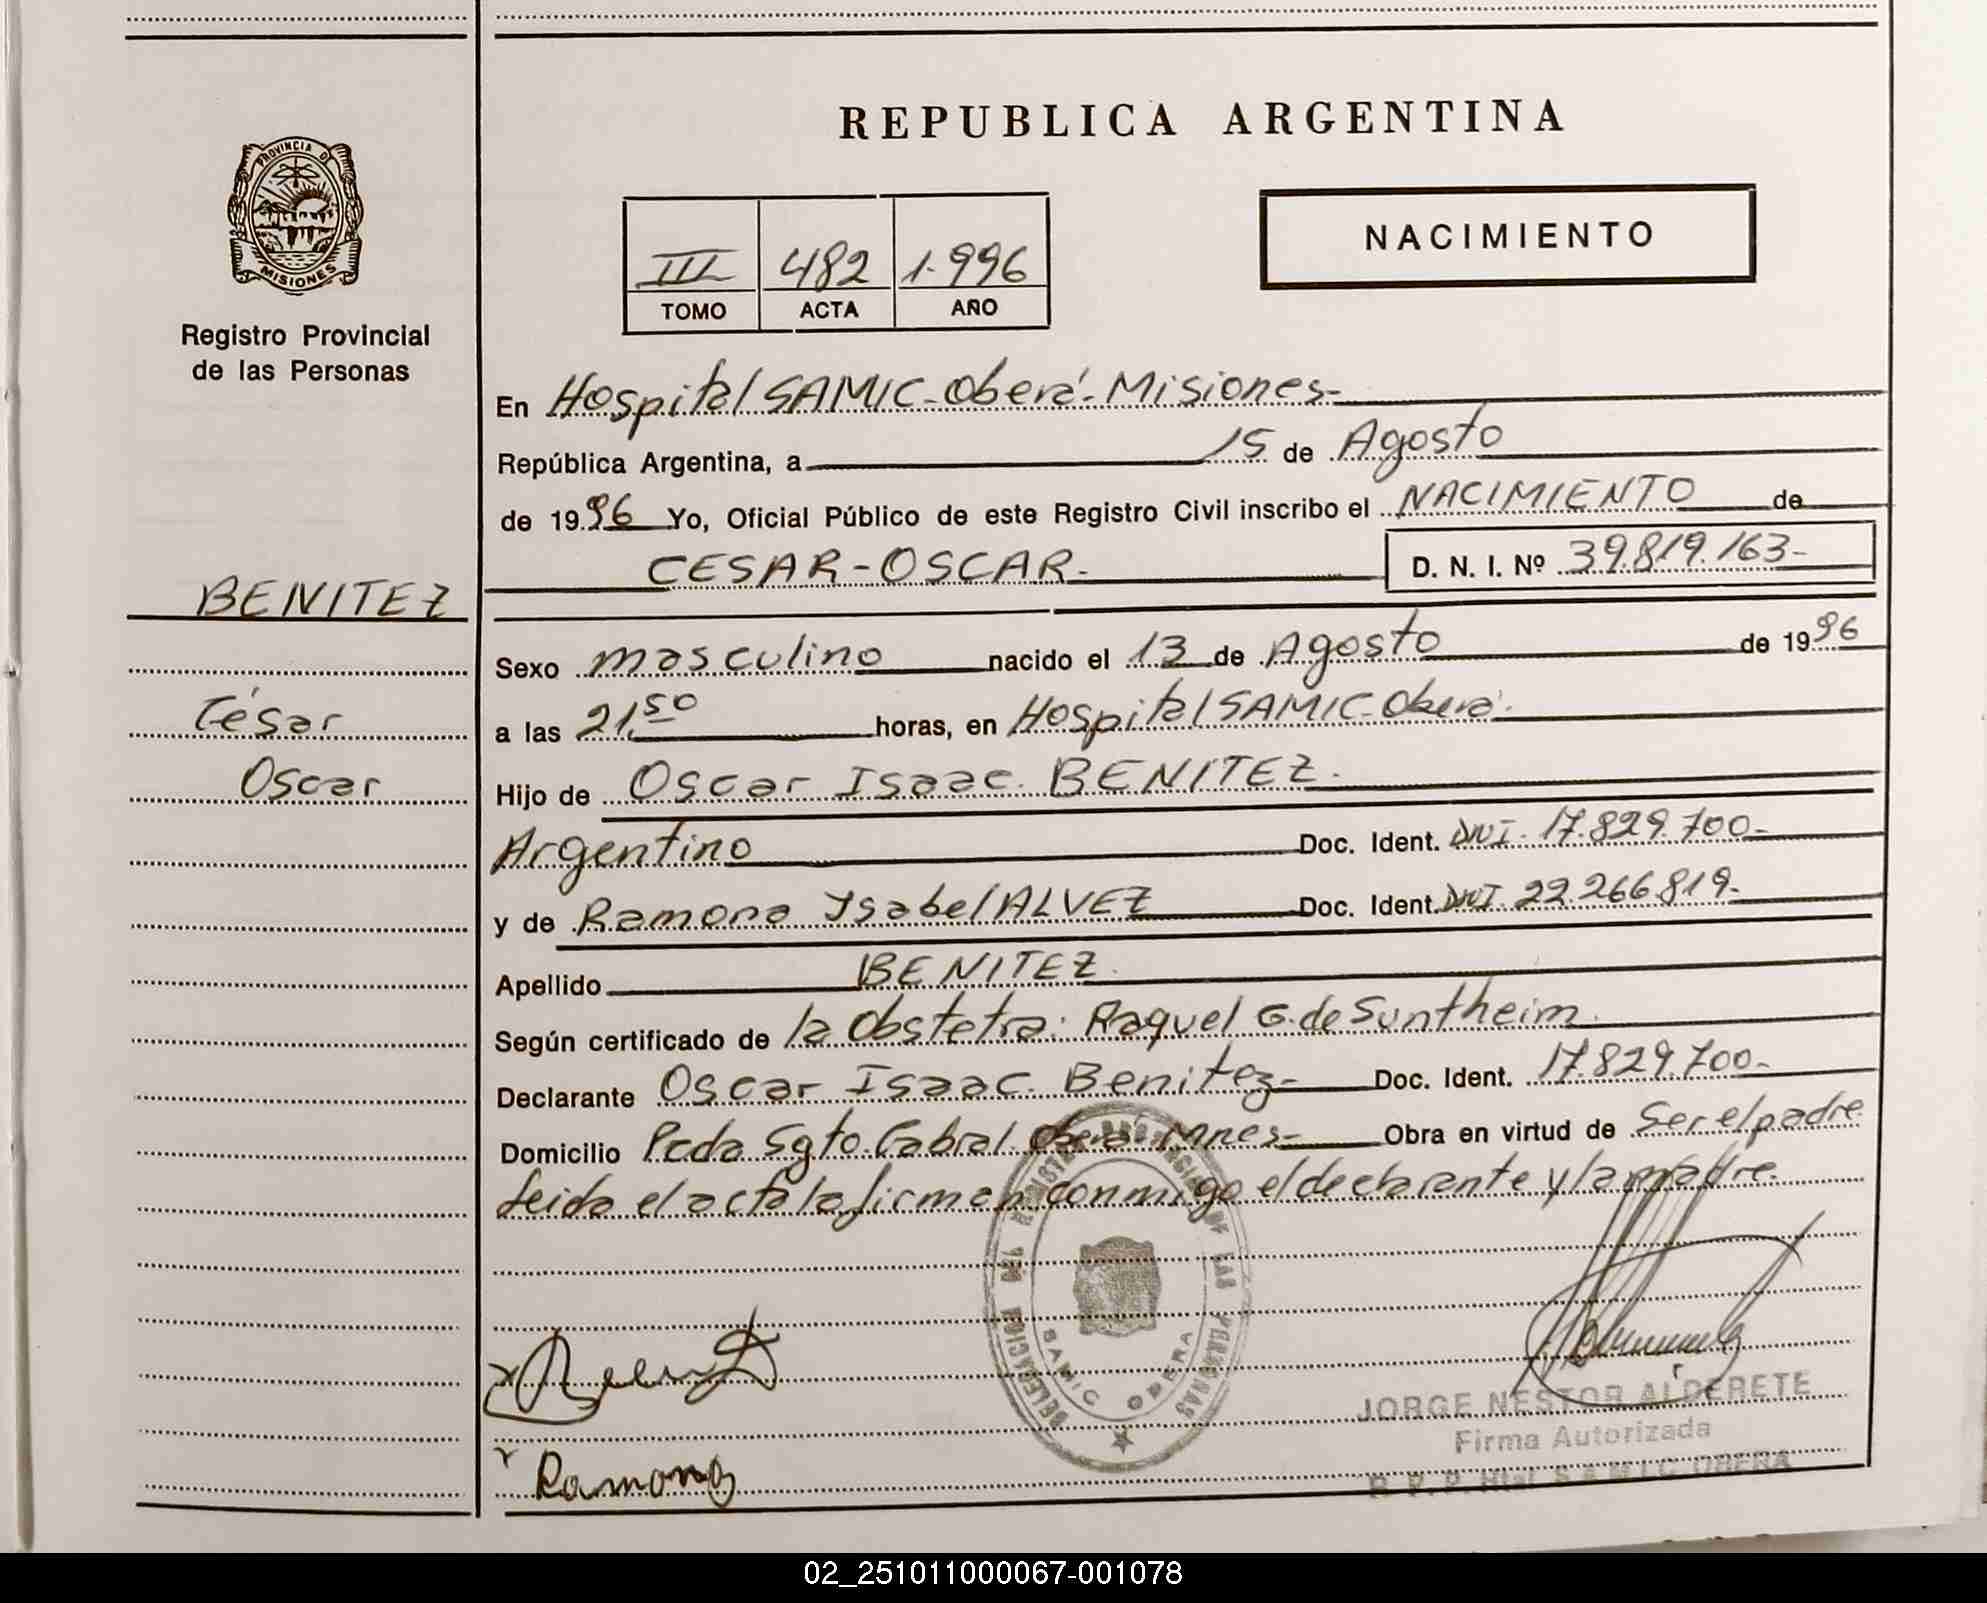 REPUBLICA ARGENTINA
PROVINCIA DE
MISIONES
Registro Provincial
de las Personas
III 482 1.996
TOMO ACTA AÑO
NACIMIENTO
En Hospital SAMIC-Oberá-Misiones-
República Argentina, a 15 de Agosto
de 1996 Yo, Oficial Público de este Registro Civil inscribo el NACIMIENTO de
CESAR-OSCAR- D. N. I. Nº 39.819.163-
BENITEZ
Sexo masculino nacido el 13 de Agosto de 1996
César
a las 21,50 horas, en Hospital SAMIC-Oberá.
Oscar
Hijo de Oscar Isaac BENITEZ.
Argentino Doc. Ident. DNI. 17.829.700-
y de Ramona Ysabel ALVEZ Doc. Ident. DNI. 22.266.819-
Apellido BENITEZ
Según certificado de la Obstetra: Raquel G. de Suntheim
Declarante Oscar Isaac Benitez- Doc. Ident. 17.829.700-
Domicilio Pcda Sgto. Cabral Oberá Mnes- Obra en virtud de Ser el padre
leida el acta la firman conmigo el declarante y la madre.
DELEGACION DEL REGISTRO PROVINCIAL DE LAS PERSONAS
SAMIC OBERA
JORGE NESTOR ALDERETE
Firma Autorizada
R. P. P. Htal S.A.M.I.C. OBERA
Ramona
02_251011000067-001078